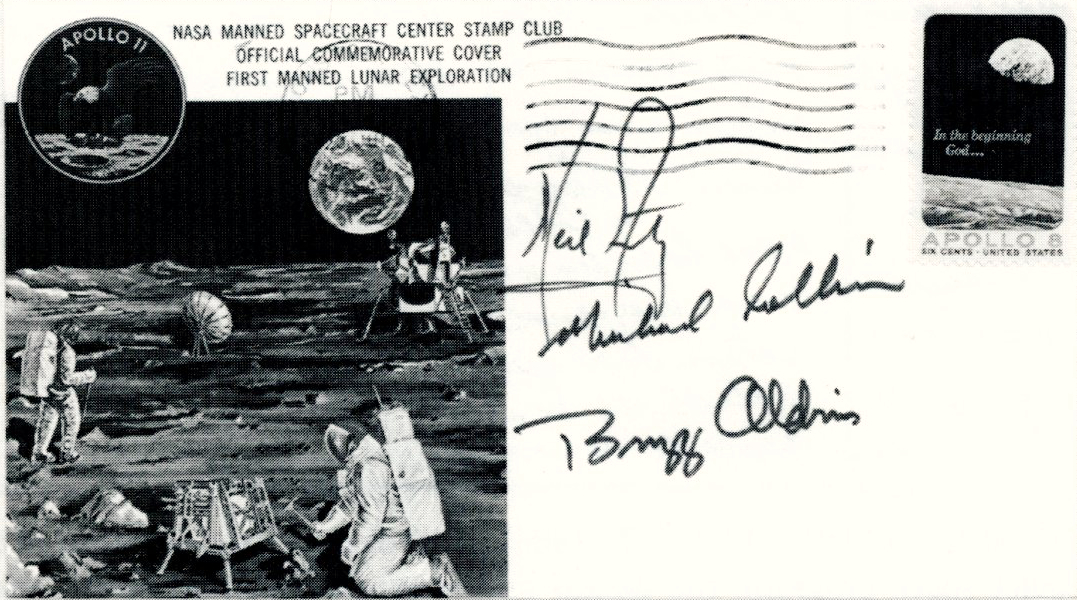 APOLLO 11
NASA MANNED SPACECRAFT CENTER STAMP CLUB
OFFICIAL COMMEMORATIVE COVER
FIRST MANNED LUNAR EXPLORATION
PM
In the beginning
God...
APOLLO 8
SIX CENTS · UNITED STATES
Neil
Michael Collins
Buzz Aldrin